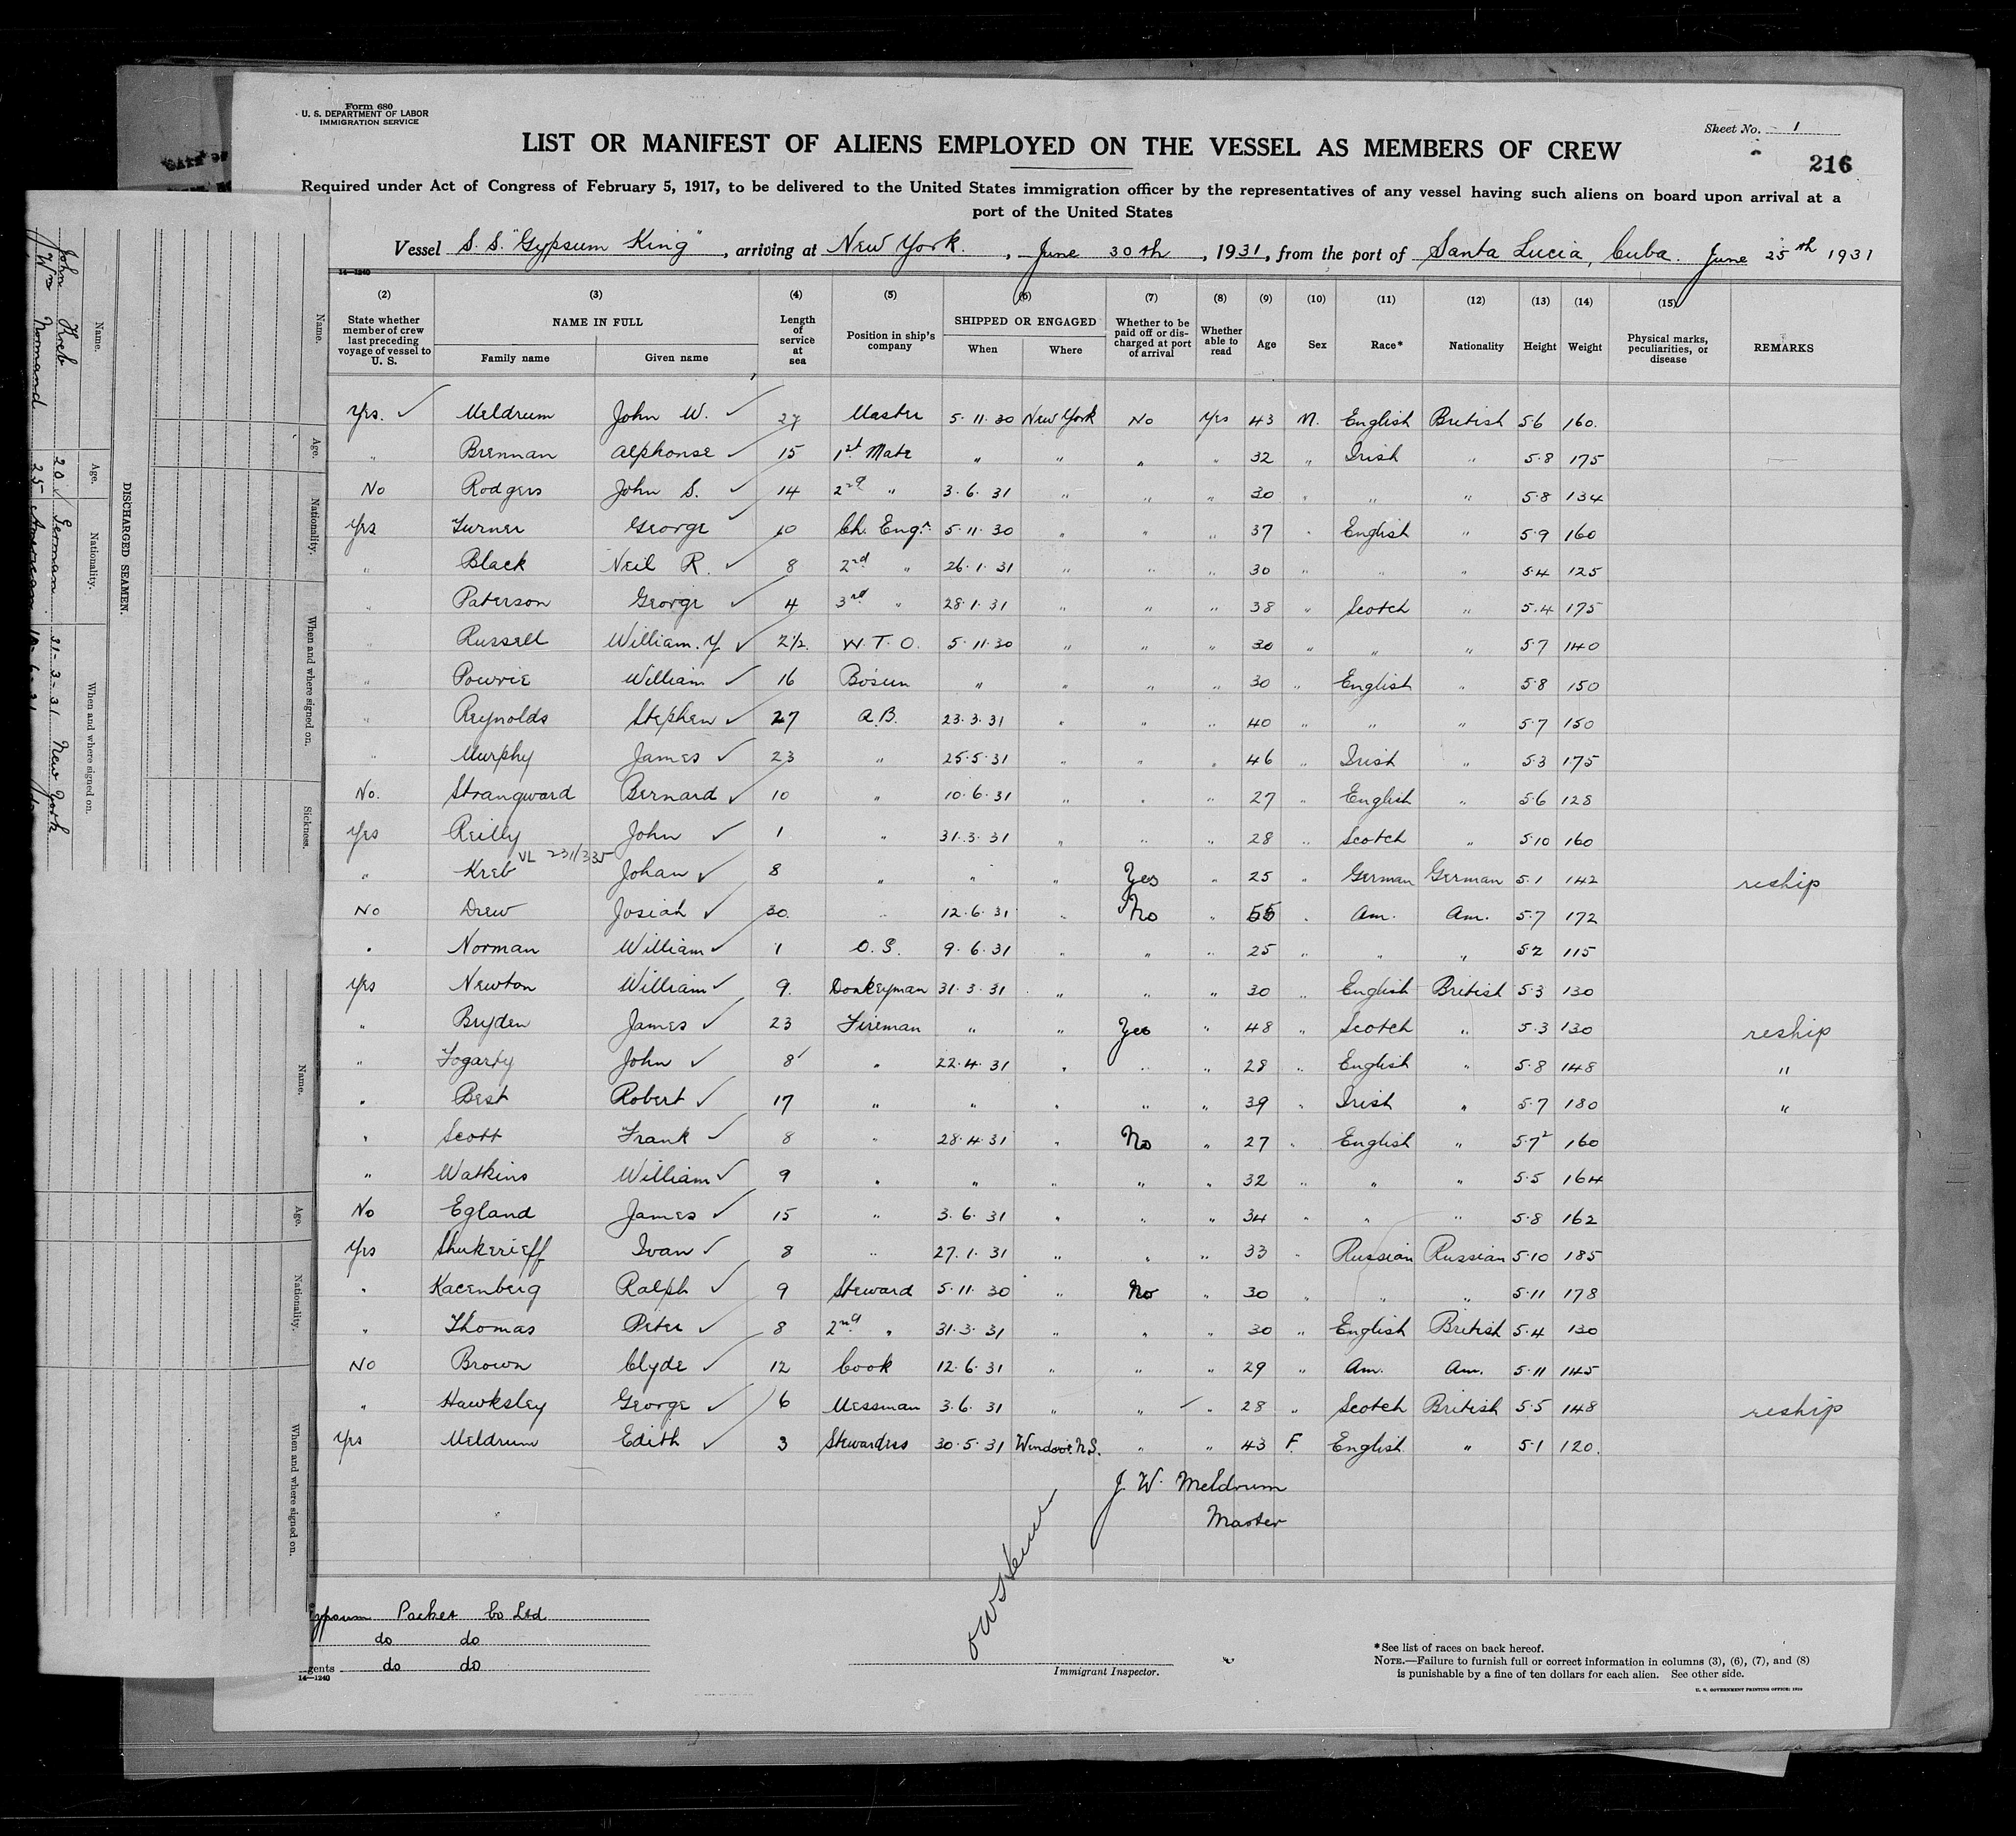 Form 680
U. S. DEPARTMENT OF LABOR
IMMIGRATION SERVICE
Sheet No. 1
LIST OR MANIFEST OF ALIENS EMPLOYED ON THE VESSEL AS MEMBERS OF CREW
216
Required under Act of Congress of February 5, 1917, to be delivered to the United States immigration officer by the representatives of any vessel having such aliens on board upon arrival at a
port of the United States
Vessel S. S. "Gypsum King", arriving at New York., June 30th, 1931, from the port of Santa Lucia, Cuba. June 25th 1931
14—1240
(2) (3) (4) (5) (6) (7) (8) (9) (10) (11) (12) (13) (14) (15)
State whether member of crew last preceding voyage of vessel to U. S. NAME IN FULL Family name Given name Length of service at sea Position in ship's company SHIPPED OR ENGAGED When Where Whether to be paid off or discharged at port of arrival Whether able to read Age Sex Race* Nationality Height Weight Physical marks, peculiarities, or disease REMARKS
Yes. Meldrum John W. 27 Master 5·11·30 New York No Yes 43 M. English British 5 6 160.
" Brennan Alphonse 15 1st Mate " " " " 32 " Irish " 5·8 175
No Rodgers John S. 14 2nd " 3·6·31 " " " 30 " " " 5·8 134
Yes Turner George 10 Ch. Engr. 5·11·30 " " " 37 " English " 5·9 160
" Black Neil R. 8 2nd " 26·1·31 " " " 30 " " " 5·4 125
" Paterson George 4 3rd " 28·1·31 " " " 38 " Scotch " 5·4 175
" Russell William. Y 2½ W. T. O. 5·11·30 " " " 30 " " " 5·7 140
" Powrie William 16 Bosun " " " " 30 " English " 5·8 150
" Reynolds Stephen 27 A.B. 23·3·31 " " " 40 " " " 5·7 150
" Murphy James 23 " 25·5·31 " " " 46 " Irish " 5·3 175
No. Strangward Bernard 10 " 10·6·31 " " " 27 " English " 5·6 128
Yes Reilly John 1 " 31·3·31 " " " 28 " Scotch " 5·10 160
VL 231/335
" Kreb Johan 8 " " " Yes " 25 " German German 5·1 142 reship
No Drew Josiah 30. " 12·6·31 " No " 55 " Am. Am. 5·7 172
" Norman William 1 O. S. 9·6·31 " " " 25 " " " 5·2 115
Yes Newton William 9. Donkeyman 31·3·31 " " " 30 " English British 5·3 130
" Bryden James 23 Fireman " " Yes " 48 " Scotch " 5·3 130 reship
" Fogarty John 8 " 22·4·31 " " " 28 " English " 5·8 148 "
" Best Robert 17 " " " " " 39 " Irish " 5·7 180 "
" Scott Frank 8 " 28·4·31 " No " 27 " English " 5·7½ 160
" Watkins William 9 " " " " " 32 " " " 5·5 164
No Egland James 15 " 3·6·31 " " " 34 " " " 5·8 162
Yes Shukerieff Ivan 8 " 27·1·31 " " " 33 " Russian Russian 5·10 185
" Kacenberg Ralph 9 Steward 5·11·30 " No " 30 " " " 5·11 178
" Thomas Peter 8 2nd " 31·3·31 " " " 30 " English British 5·4 130
No Brown Clyde 12 Cook 12·6·31 " " " 29 " Am. Am. 5·11 145
" Hawksley George 6 Messman 3·6·31 " " " 28 " Scotch British 5·5 148 reship
Yes Meldrum Edith 3 Stewardess 30·5·31 Windsor N.S. " " 43 F. English " 5·1 120.
J. W. Meldrum
Master
Gypsum Packet Co Ltd
do do
gents do do
14—1240
Immigrant Inspector.
*See list of races on back hereof.
NOTE.—Failure to furnish full or correct information in columns (3), (6), (7), and (8)
is punishable by a fine of ten dollars for each alien. See other side.
U. S. GOVERNMENT PRINTING OFFICE
DISCHARGED SEAMEN.
Name. Age. Nationality. When and where signed on.
John Kreb 20 German 31-3-31 New York
Wm Normand 25 American
Name. Age. Nationality. When and where signed on. Sickness.
Name. Age. Nationality. When and where signed on.